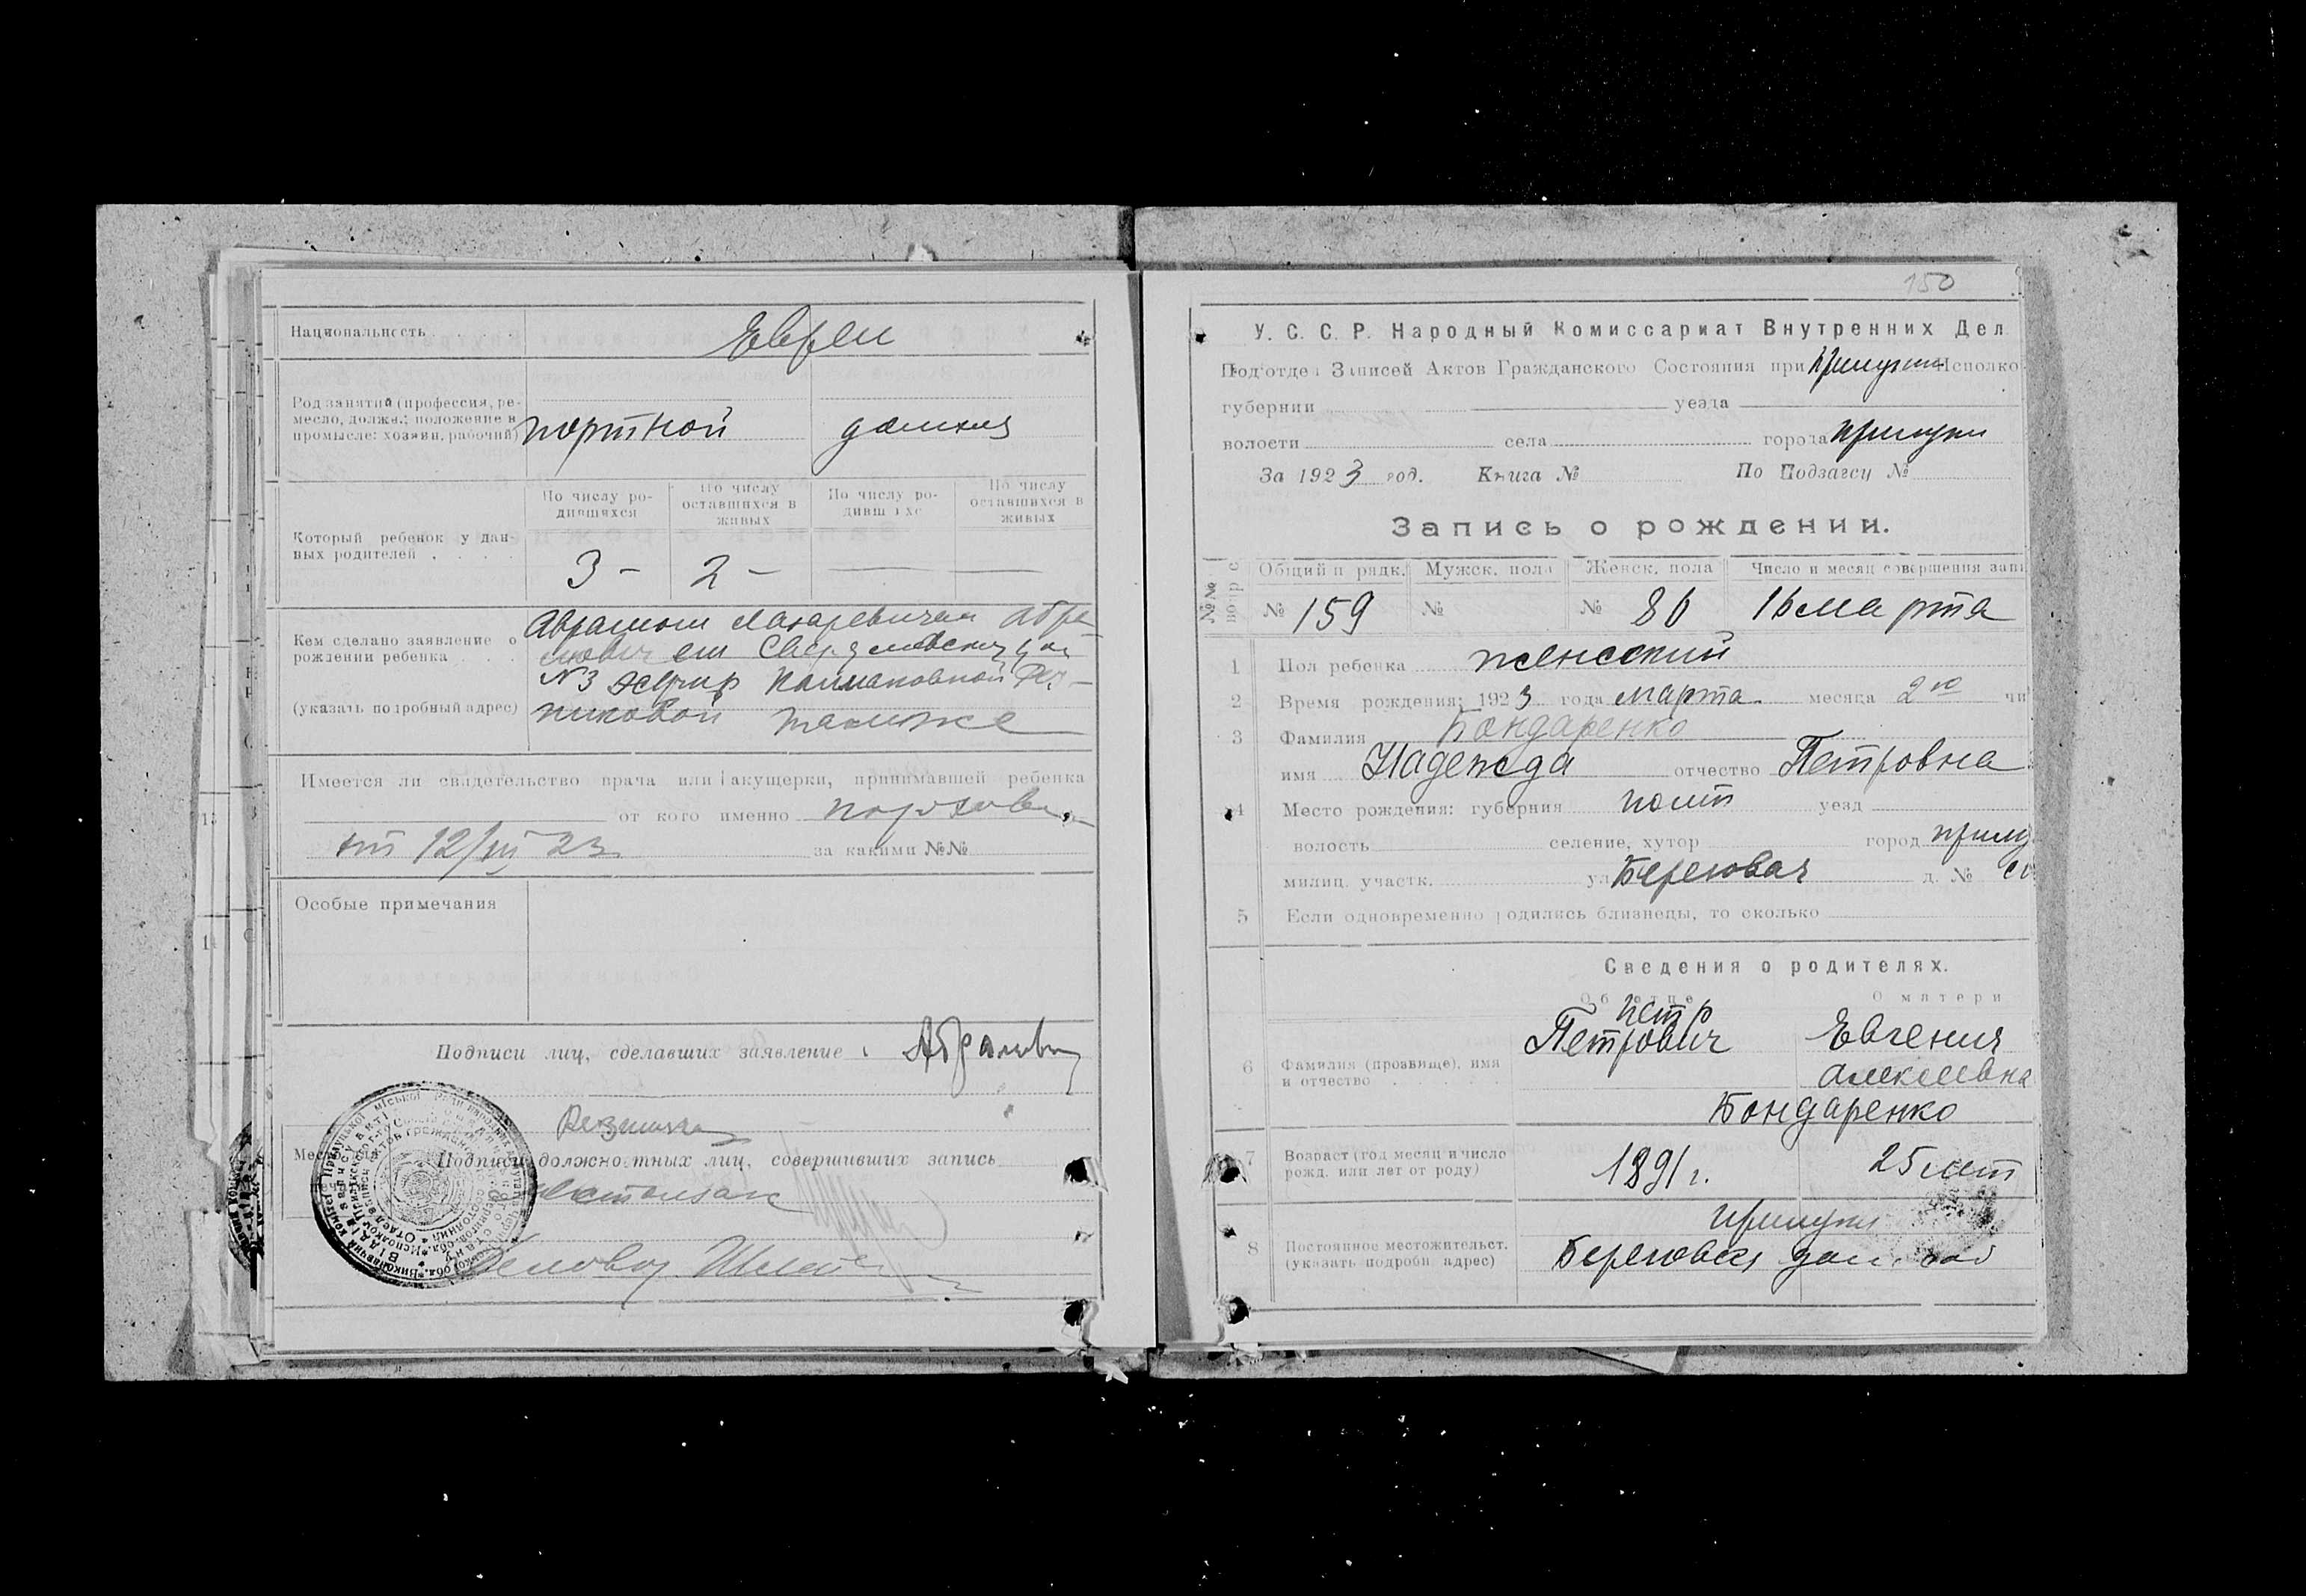 Национальность
Евреи
Род занятий (профессия, ре-
месло, должн.; положение в
промысле: хозяин, рабочий)
портной
домхоз
По числу ро-
дившихся
По числу
оставшихся в
живых
По числу ро-
дивш хс
По числу
оставшихся в
живых
Который ребенок у дан-
ных родителей . . . .
3 —
2 —
Кем сделано заявление о
рождении ребенка . . .
(указать подробный адрес)
Абрамом Лазаревичем Абра-
мович
№ 3
никовой также
Имеется ли свидетельство врача или акушерки, принимавшей ребенка
от кого именно
от 12/III 23
за какими №№
Особые примечания
Подписи лиц, сделавших заявление
Абрамович
Подписи должностных лиц, совершивших запись
150
У. С. С. Р. Народный Комиссариат Внутренних Дел
Подотдел Записей Актов Гражданского Состояния при Прилуцком Исполко
губернии уезда
волости села города Прилуки
За 1923 год. Книга № По Подзагсу №
Запись о рождении.
№№
Общий п рядк. Мужск. пола Женск. пола Число и месяц совершения запи
№ 159 № № 86 16 марта
1 Пол ребенка женский
2 Время рождения: 1923 года марта месяца 2го чи
3 Фамилия Бондаренко
имя Надежда отчество Петровна
4 Место рождения: губерния Полт уезд
волость селение, хутор город Прилу
милиц. участк. ул Береговая д. № со
5 Если одновременно родились близнецы, то сколько
Сведения о родителях.
Об отце О матери
6 Фамилия (прозвище), имя
и отчество
Петр
Петрович
Евгения
Алексеевна
Бондаренко
7 Возраст (год месяц и число
рожд. или лет от роду)
1891 г.
25 лет
8 Постоянное местожительст.
(указать подробн адрес)
Прилуки
Береговая дом соб